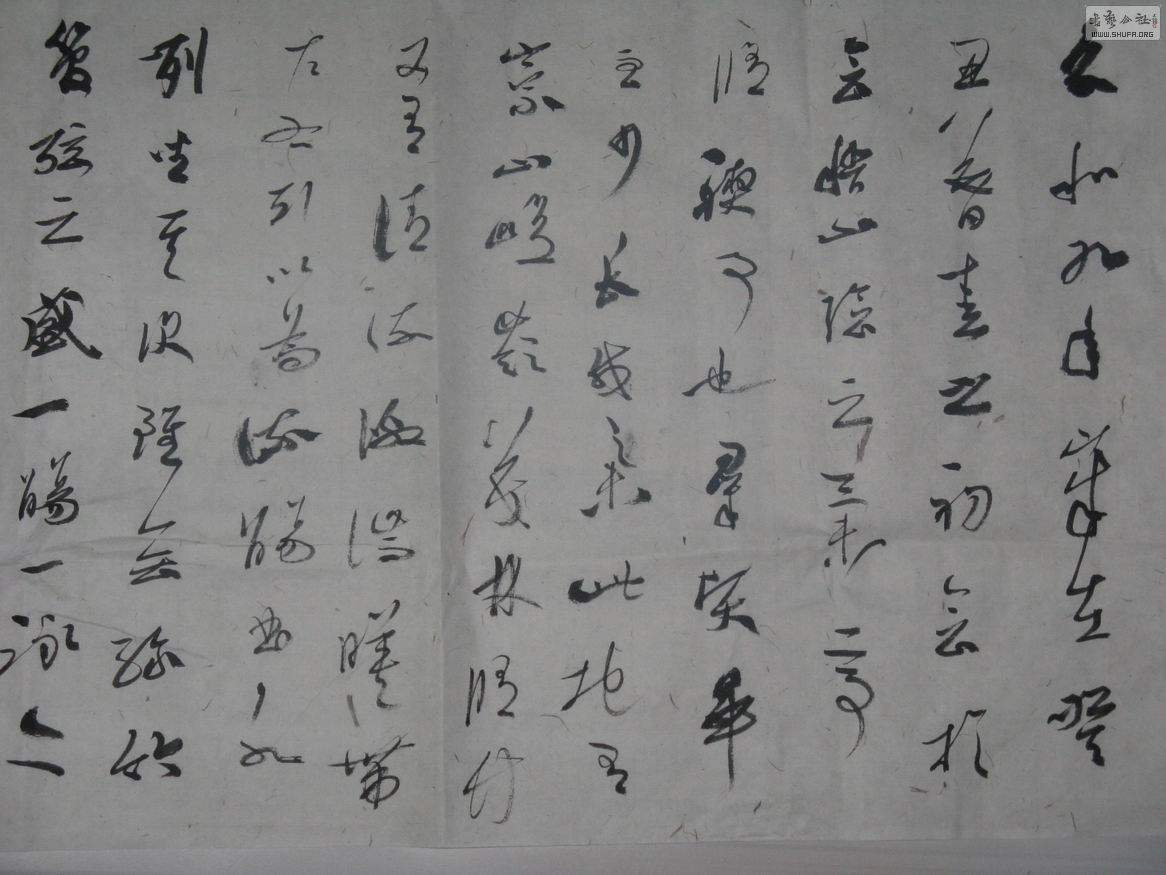 永和九年歲在癸
丑暮春之初會於
會稽山陰之蘭亭
脩禊事也羣賢畢
至少長咸集此地有
崇山峻嶺茂林脩竹
又有清流激湍暎帶
左右引以為流觴曲水
列坐其次雖無絲竹
管弦之盛一觴一詠
书艺公社
WWW.SHUFA.ORG